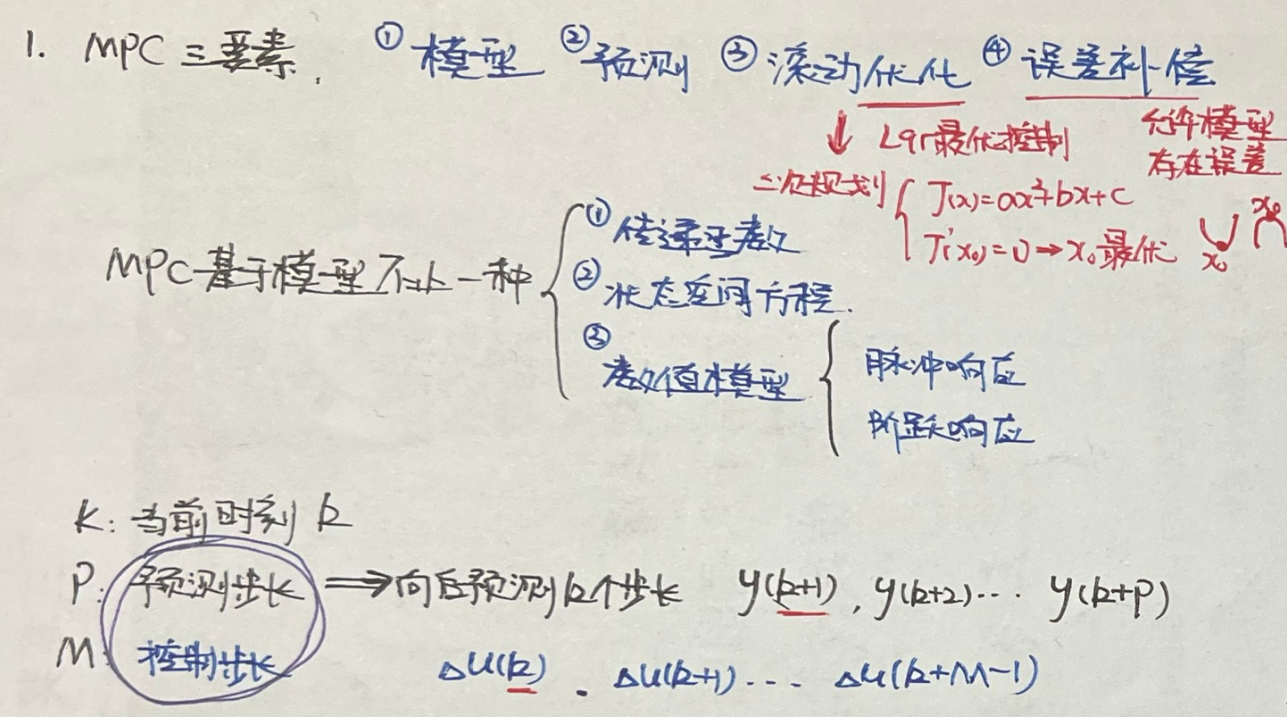 1. MPC 三要素. ① 模型 ② 预测 ③ 滚动优化 ④ 误差补偿
↓ Lqr最优控制
允许模型
存在误差
二次规划 { J(x)=ax²+bx+c
J'(x₀)=0→x₀最优 x₀ x₀
MPC基于模型不止一种 { ① 传递函数
② 状态空间方程.
③ 数值模型 { 脉冲响应
阶跃响应
K: 当前时刻 k
P: 预测步长 ⟹ 向后预测k个步长 y(k+1), y(k+2)··· y(k+P)
M: 控制步长 Δu(k). Δu(k+1)··· Δu(k+M-1)